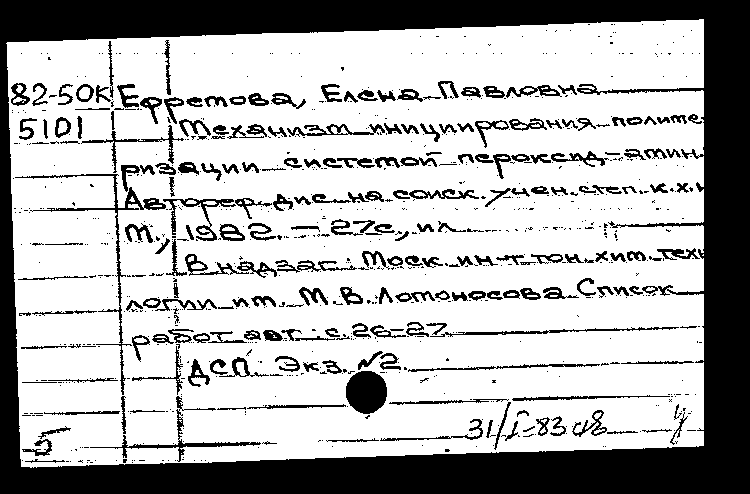 82-50К Ефремова, Елена Павловна
5101 Механизм инициирования полиме-
ризации системой пероксид-амин.
Автореф. дис. на соиск. учен. степ. к.х.н
М., 1982. – 27с., ил
В надзаг.: Моск. ин-т тон. хим. техн
логии им. М.В. Ломоносова. Список
работ авт.: с. 26-27
ДСП. Экз. №2.
31/I-83
5